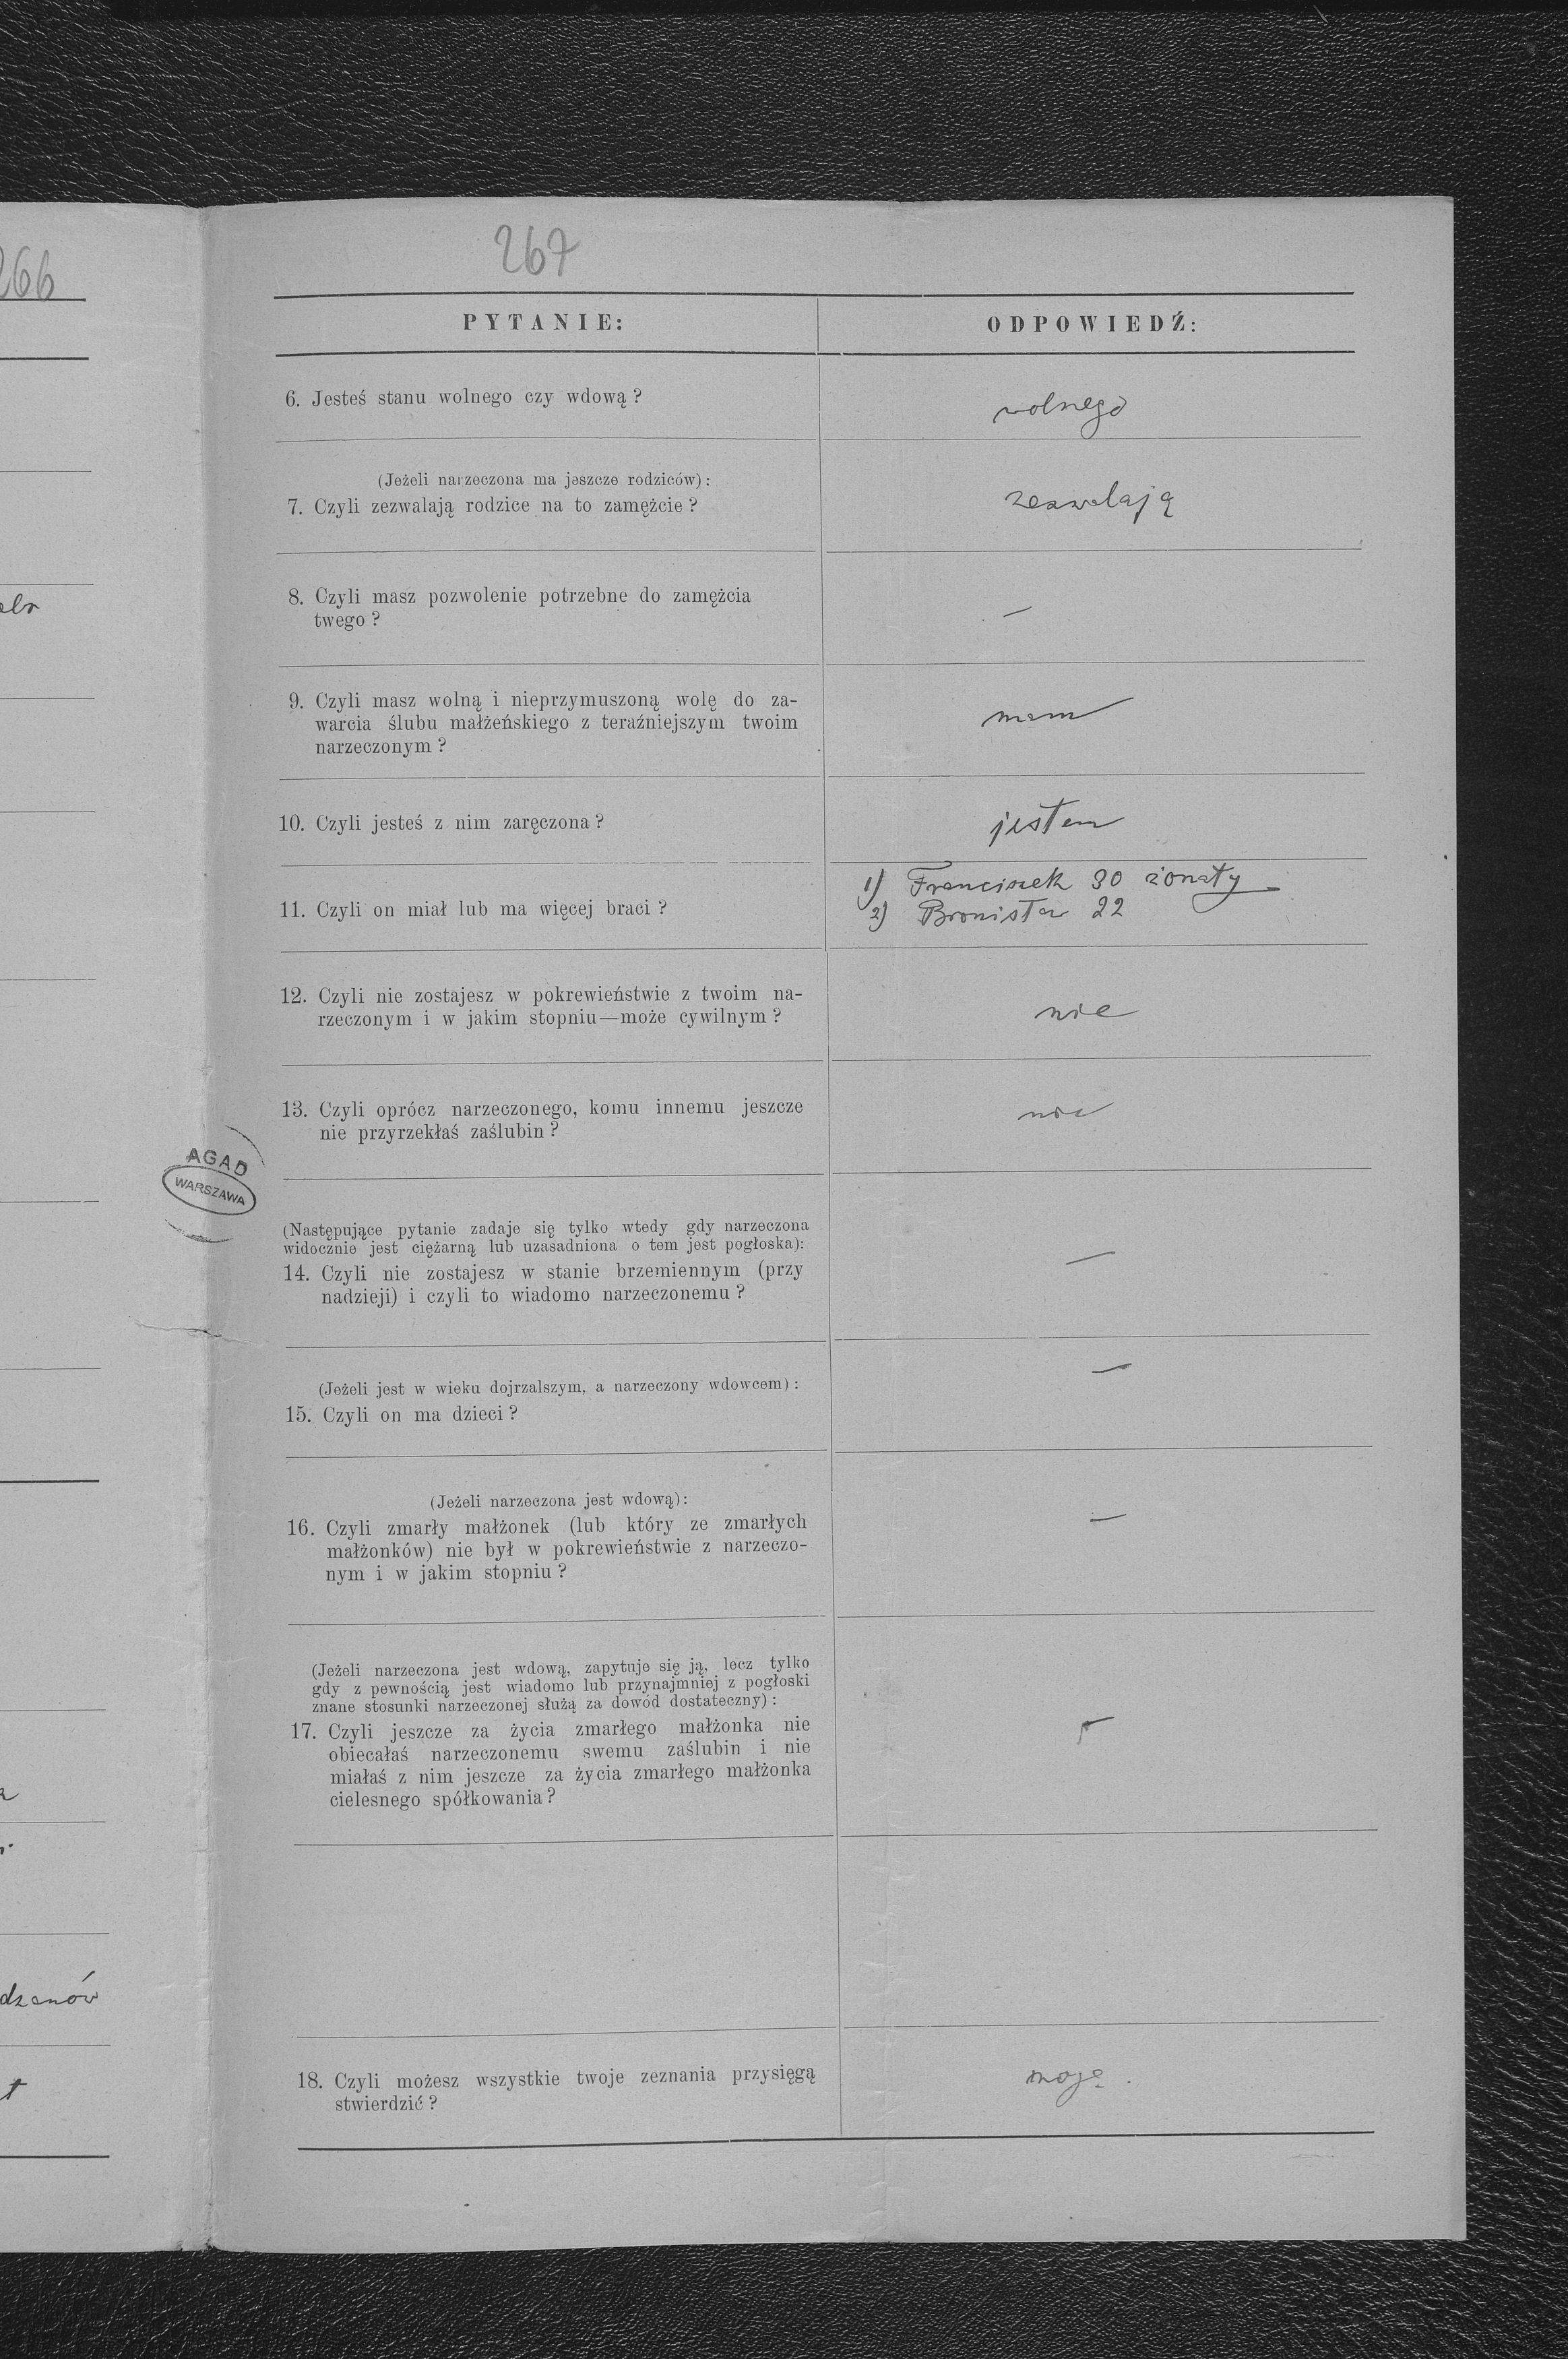 266
267
PYTANIE:
ODPOWIEDŹ:
6. Jesteś stanu wolnego czy wdową ?
wolnego
(Jeżeli narzeczona ma jeszcze rodziców) :
7. Czyli zezwalają rodzice na to zamężcie ?
zezwalają
8. Czyli masz pozwolenie potrzebne do zamężcia
twego ?
—
9. Czyli masz wolną i nieprzymuszoną wolę do za-
warcia ślubu małżeńskiego z teraźniejszym twoim
narzeczonym ?
mam
10. Czyli jesteś z nim zaręczona ?
jestem
11. Czyli on miał lub ma więcej braci ?
1) Franciszek 30 żonaty
2) Bronisław 22
12. Czyli nie zostajesz w pokrewieństwie z twoim na-
rzeczonym i w jakim stopniu—może cywilnym ?
nie
13. Czyli oprócz narzeczonego, komu innemu jeszcze
nie przyrzekłaś zaślubin ?
nie
AGAD
WARSZAWA
(Następujące pytanie zadaje się tylko wtedy gdy narzeczona
widocznie jest ciężarną lub uzasadniona o tem jest pogłoska):
14. Czyli nie zostajesz w stanie brzemiennym (przy
nadzieji) i czyli to wiadomo narzeczonemu ?
—
(Jeżeli jest w wieku dojrzalszym, a narzeczony wdowcem) :
15. Czyli on ma dzieci ?
—
(Jeżeli narzeczona jest wdową) :
16. Czyli zmarły małżonek (lub który ze zmarłych
małżonków) nie był w pokrewieństwie z narzeczo-
nym i w jakim stopniu ?
—
(Jeżeli narzeczona jest wdową, zapytuje się ją, lecz tylko
gdy z pewnością jest wiadomo lub przynajmniej z pogłoski
znane stosunki narzeczonej służą za dowód dostateczny) :
17. Czyli jeszcze za życia zmarłego małżonka nie
obiecałaś narzeczonemu swemu zaślubin i nie
miałaś z nim jeszcze za życia zmarłego małżonka
cielesnego spółkowania ?
—
dzanów
18. Czyli możesz wszystkie twoje zeznania przysięgą
stwierdzić ?
mogę .